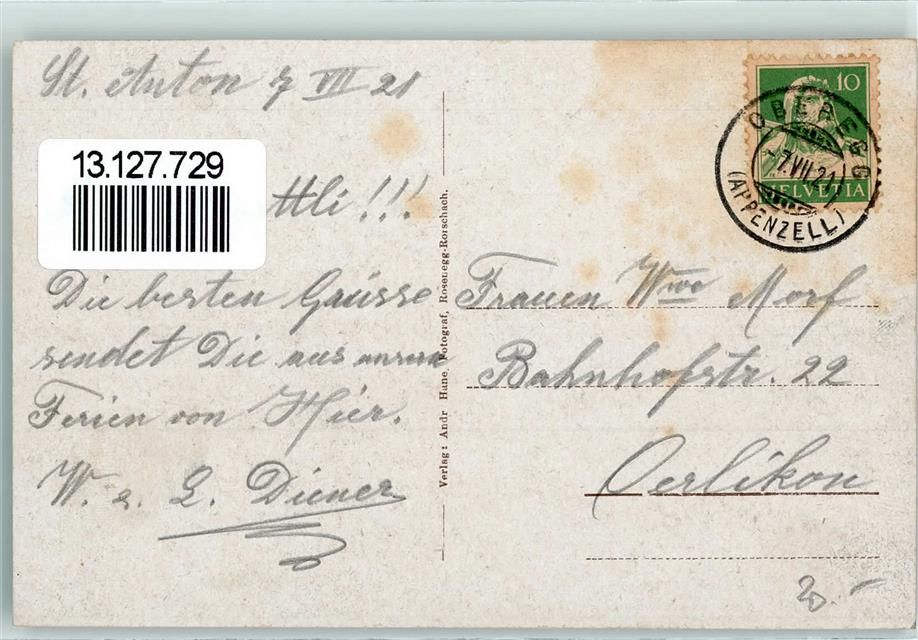 St. Anton 7 VII 21
13.127.729
ttli !!!
Die besten Grüsse
sendet Die aus unsern
Ferien von Hier.
W. u. L. Diener
Verlag: Andr Hane, Fotograf, Rosenegg-Rorschach.
10
HELVETIA
OBEREGG
-7.VII.21
(APPENZELL)
Frauen Wwe Morf
Bahnhofstr. 22
Oerlikon
20.-